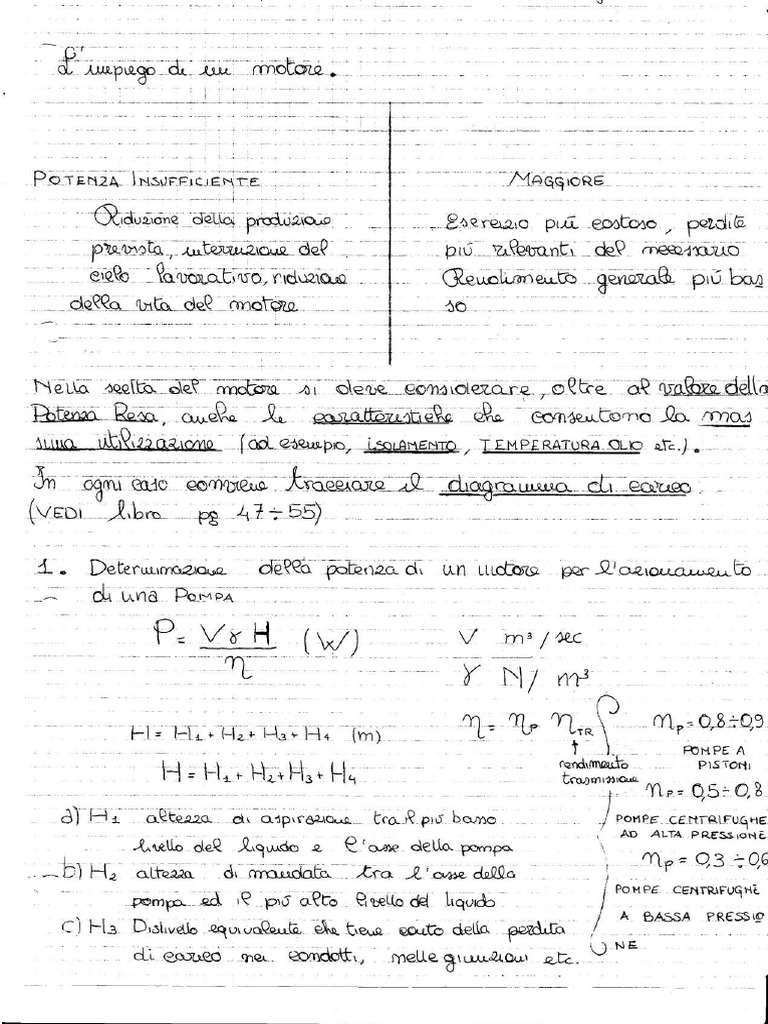 L'impiego di un motore.
POTENZA INSUFFICIENTE
Riduzione della produzione
prevista, interruzione del
ciclo lavorativo, riduzione
della vita del motore
MAGGIORE
Esercizio più costoso, perdite
più rilevanti del necessario
Rendimento generale più bas
so
Nella scelta del motore si deve considerare, oltre al valore della
Potenza Resa, anche le caratteristiche che consentono la mas
sima utilizzazione (ad esempio, ISOLAMENTO, TEMPERATURA OLIO etc.).
In ogni caso conviene tracciare il diagramma di carico.
(VEDI libro pg 47÷55)
1. Determinazione della potenza di un motore per l'azionamento
di una POMPA
P = VγH / η (W)
V m³/sec
γ N/m³
H = H1 + H2 + H3 + H4 (m)
H = H1 + H2 + H3 + H4
η = ηp ηTR
↑
rendimento
trasmissione
ηp = 0,8÷0,9
POMPE A
PISTONI
ηp = 0,5÷0,8
POMPE CENTRIFUGHE
AD ALTA PRESSIONE
ηp = 0,3÷0,6
POMPE CENTRIFUGHE
A BASSA PRESSIO
NE
a) H1 altezza di aspirazione tra il più basso
livello del liquido e l'asse della pompa
b) H2 altezza di mandata tra l'asse della
pompa ed il più alto livello del liquido
c) H3 Dislivello equivalente che tiene conto della perdita
di carico nei condotti, nelle giunzioni etc.